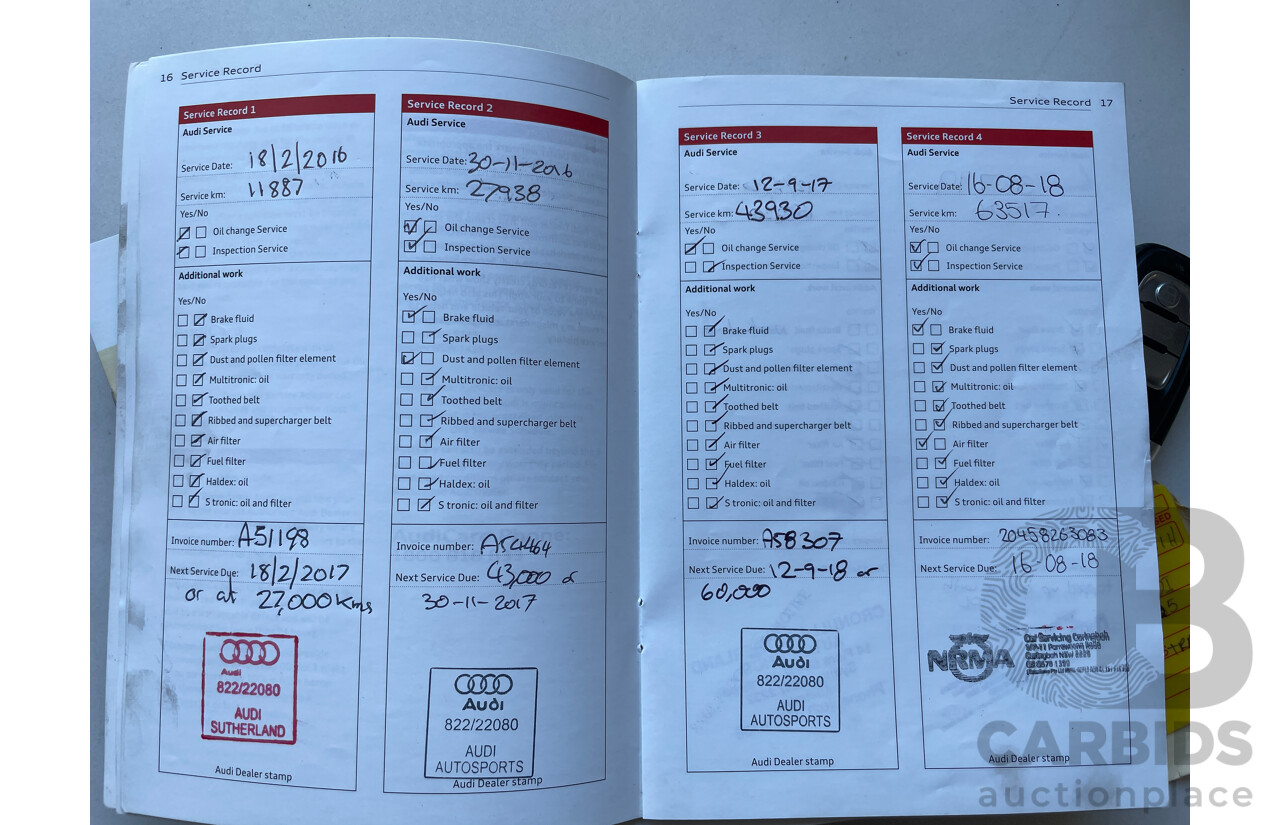 16 Service Record
Service Record 1
Audi Service
Service Date: 18/2/2016
Service km: 11887
Yes/No
Oil change Service
Inspection Service
Additional work
Yes/No
Brake fluid
Spark plugs
Dust and pollen filter element
Multitronic: oil
Toothed belt
Ribbed and supercharger belt
Air filter
Fuel filter
Haldex: oil
S tronic: oil and filter
Invoice number: A51198
Next Service Due: 18/2/2017
or at 27,000 Kms
Audi
822/22080
AUDI
SUTHERLAND
Audi Dealer stamp
Service Record 2
Audi Service
Service Date: 30-11-2016
Service km: 27938
Yes/No
Oil change Service
Inspection Service
Additional work
Yes/No
Brake fluid
Spark plugs
Dust and pollen filter element
Multitronic: oil
Toothed belt
Ribbed and supercharger belt
Air filter
Fuel filter
Haldex: oil
S tronic: oil and filter
Invoice number: A54464
Next Service Due: 43,000 or
30-11-2017
Audi
822/22080
AUDI
AUTOSPORTS
Audi Dealer stamp
Service Record 17
Service Record 3
Audi Service
Service Date: 12-9-17
Service km: 43930
Yes/No
Oil change Service
Inspection Service
Additional work
Yes/No
Brake fluid
Spark plugs
Dust and pollen filter element
Multitronic: oil
Toothed belt
Ribbed and supercharger belt
Air filter
Fuel filter
Haldex: oil
S tronic: oil and filter
Invoice number: A58307
Next Service Due: 12-9-18 or
60,000
Audi
822/22080
AUDI
AUTOSPORTS
Audi Dealer stamp
Service Record 4
Audi Service
Service Date: 16-08-18
Service km: 63517.
Yes/No
Oil change Service
Inspection Service
Additional work
Yes/No
Brake fluid
Spark plugs
Dust and pollen filter element
Multitronic: oil
Toothed belt
Ribbed and supercharger belt
Air filter
Fuel filter
Haldex: oil
S tronic: oil and filter
Invoice number: 20458263083
Next Service Due: 16-08-18
NRMA
Car Servicing
Audi Dealer stamp
CARBIDS
auctionplace